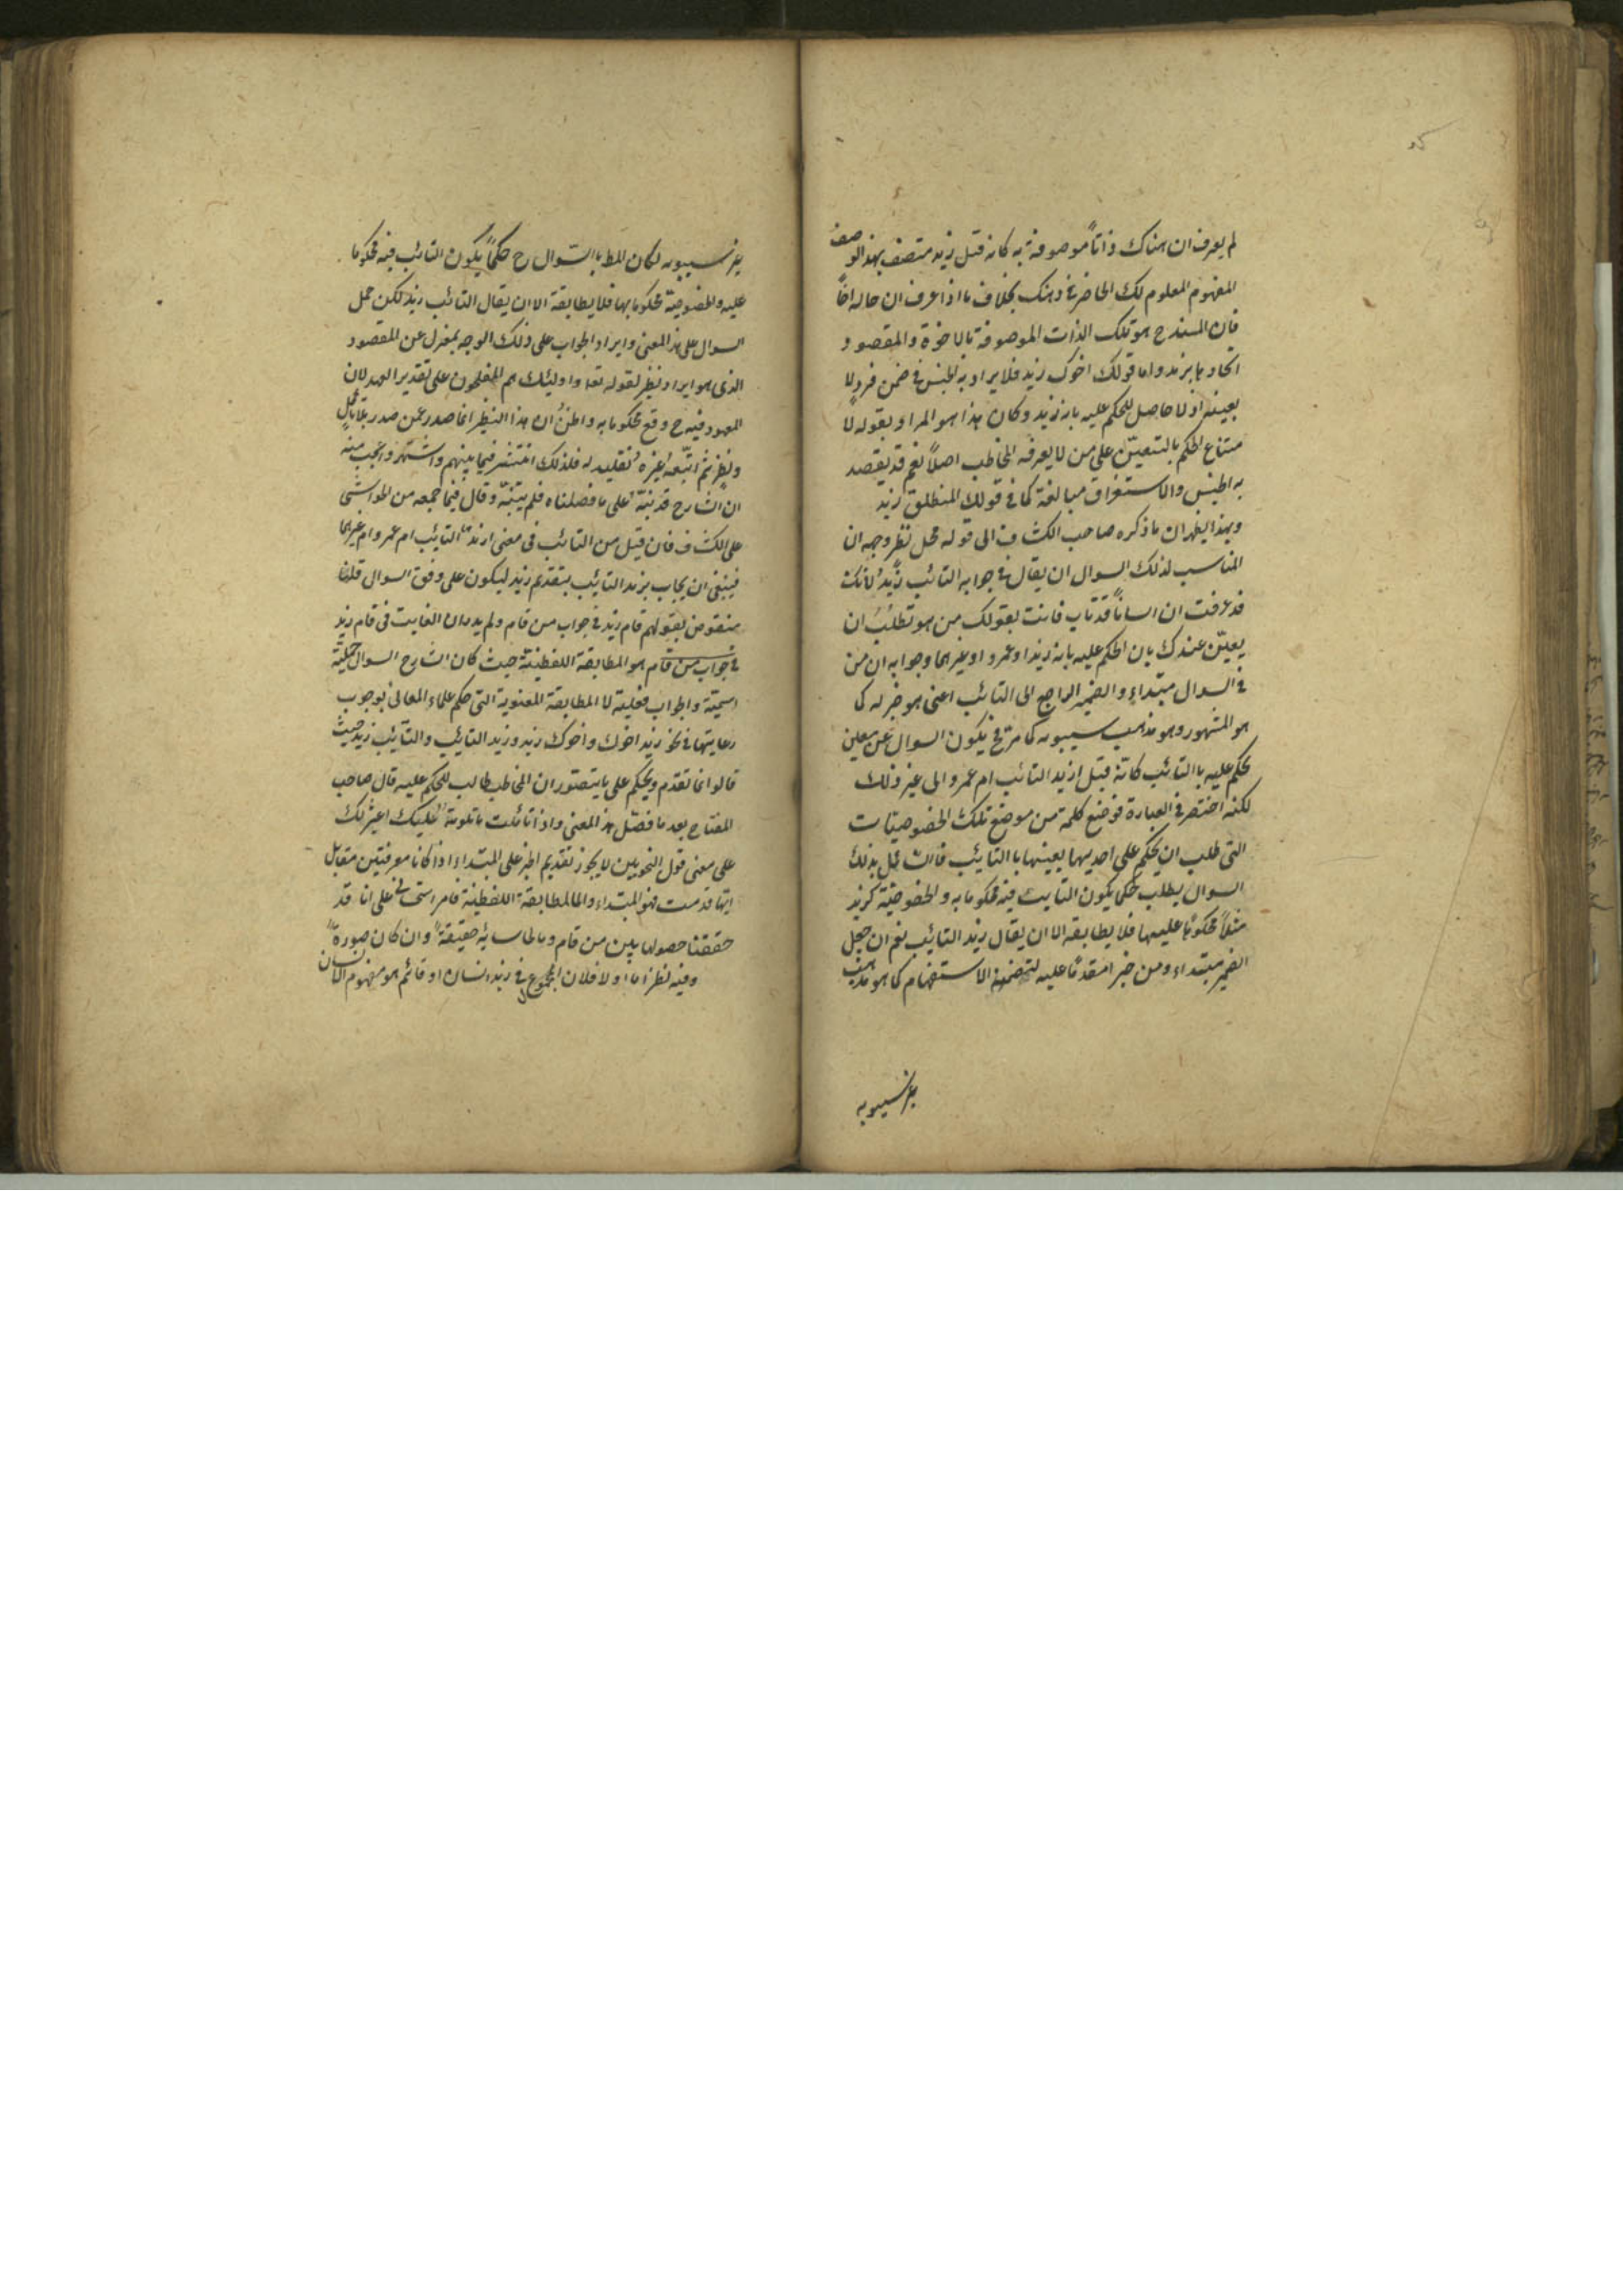 لم يعرف ان هناك ذاتاً موصوفة به كانه قيل زيد متصف بهذا الوصف
المفهوم المعلوم لك الحاضر فى ذهنك بخلاف ما اذا عرف ان حاله اخاً
فان المسند ح هو تلك الذات الموصوفة بالاخوة والمقصود
اتحادها بزيد واما قولك اخوك زيد فلا يراد به الجنس فى ضمن فرد لا
بعينه اذ لا حاصل للحكم عليه بانه زيد وكان هذا هو المراد بقوله لا
متناع الحكم بالتعين على من لا يعرفه المخاطب اصلاً نعم قد يقصد
به الجنس والاستغراق مبالغة كما فى قولك المنطلق زيد
وبهذا يظهر ان ما ذكره صاحب الكشاف الى قوله محل نظر وجهه ان
المناسب لذلك السوال ان يقال فى جوابه التائب زيد لانك
قد عرفت ان انساناً قد تاب فانت بقولك من هو تطلب ان
يعين عندك بان الحكم عليه بانه زيد او عمرو او غيرهما وجوابه ان من
فى السوال مبتداء والضمير الراجع الى التائب اعنى هو خبر له كما
هو المشهور وهو مذهب سيبويه كما مر فح يكون السوال عن معين
يحكم عليه بالتائب كانه قيل ازيد التائب ام عمرو الى غير ذلك
لكنه اختصر فى العبارة فوضع كلمة من موضع تلك الخصوصيات
التى طلب ان يحكم على احديها بعينها بالتائب فالسائل بذلك
السوال يطلب حكما يكون التائب فيه محكوما به والخصوصية كزيد
مثلاً محكوماً عليها فلا يطابقه الا ان يقال زيد التائب نعم ان جعل
الضمير مبتداء ومن خبرا مقدماً عليه لتضمنه الاستفهام كما هو مذهب
غير سيبويه
غير سيبويه لكان المط بالسوال ح حكماً يكون التائب فيه محكوما
عليه والخصوصية محكوما بها فلا يطابقه الا ان يقال التائب زيد لكن حمل
السوال على هذ المعنى وايراد الجواب على ذلك الوجه بمعزل عن المقصود
الذى هو ايراد نظير لقوله تعا واوليئك هم المفلحون على تقدير العهد لان
المعهود فيه ح وقع محكوما به واظن ان هذا النظير انما صدر عمن صدر بلا تامل
ونظر ثم اتبعه غيره تقليدا له فلذلك انتشر فيما بينهم واشتهر واعجب منه
ان الشارح قد نبه على ما فصلناه فلم يتنبه وقال فيما جمعه من الحواشى
على الكشاف فان قيل من التائب فى معنى ازيد التائب ام عمرو ام غيرهما
فينبغى ان يجاب بزيد التائب بتقديم زيد ليكون على وفق السوال قلنا
منقوض بقولهم قام زيد فى جواب من قام ولم يدر ان الفايت فى قام زيد
فى جواب من قام هو المطابقة اللفظية حيث كان الشارح السوال جملة
اسمية والجواب فعلية لا المطابقة المعنوية التى حكم علماء المعانى بوجوب
رعايتها فى نحو زيد اخوك واخوك زيد وزيد التايئب والتايئب زيد حيث
قالوا انما تقدم ويحكم على ما يتصور ان المخاطب طالب للحكم عليه قال صاحب
المفتاح بعد ما فصل هذ المعنى واذا تاملت ما تلوته عليك اعثرك
على معنى قول النحويين لا يجوز تقديم الخبر على المبتداء اذا كانا معرفتين مقابل
ايها قدمت فهو المبتداء والمالمطابقة اللفظية فامر استحسانى على انا قد
حققنا حصولها بين من قام وبالحاسائه حقيقة وان كان صورة
وفيه نظر اما اولا فلان المجموع فى زيد انسان او قائم هو مفهوم الانسان